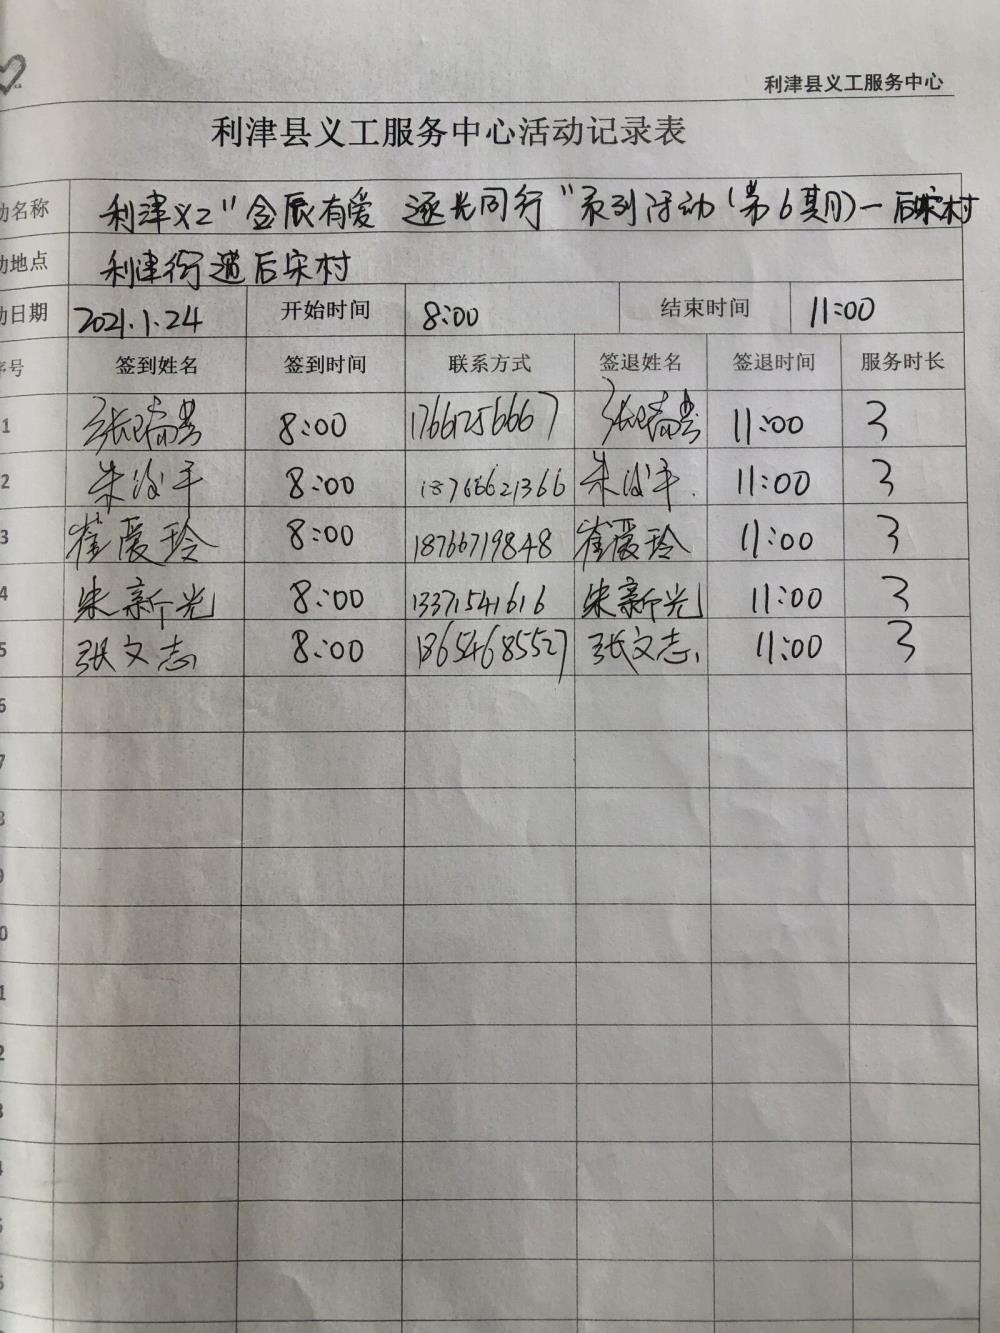 利津县义工服务中心
利津县义工服务中心活动记录表
动名称 利津义工"金辰有爱 逐光同行"系列活动(第6期)一后宋村
动地点 利津街道后宋村
动日期 2021.1.24 开始时间 8:00 结束时间 11:00
序号 签到姓名 签到时间 联系方式 签退姓名 签退时间 服务时长
1 张瑞 8:00 17661256667 张瑞 11:00 3
2 朱 平 8:00 18766621366 朱 平. 11:00 3
3 崔爱玲 8:00 18766719848 崔爱玲 11:00 3
4 朱新光 8:00 13371541616 朱新光 11:00 3
5 张文志 8:00 18654685527 张文志 11:00 3
6
7
8
9
0
1
2
3
4
5
6